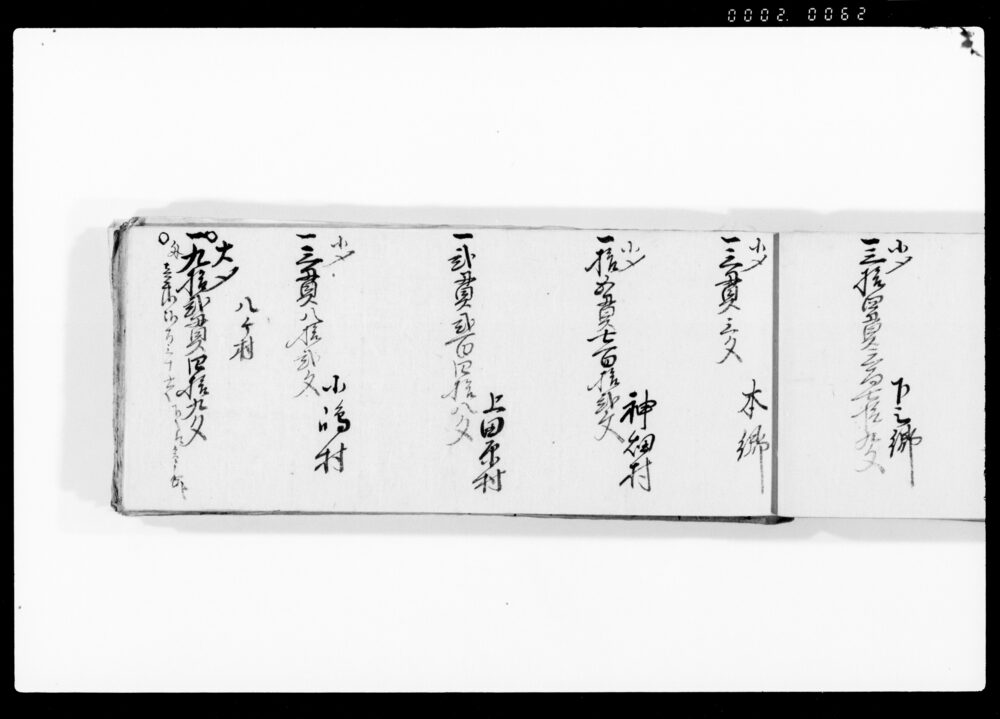 0002. 0062
小〆
一三拾四貫三百七拾九文
下之郷
小〆
一三貫三文
本郷
小〆
一拾五貫七百拾弐文
神畑村
一弐貫弐百四拾八文
上田原村
小〆
一三貫八拾弐文
小嶋村
八ケ村
大〆
一九拾弐貫四拾九文